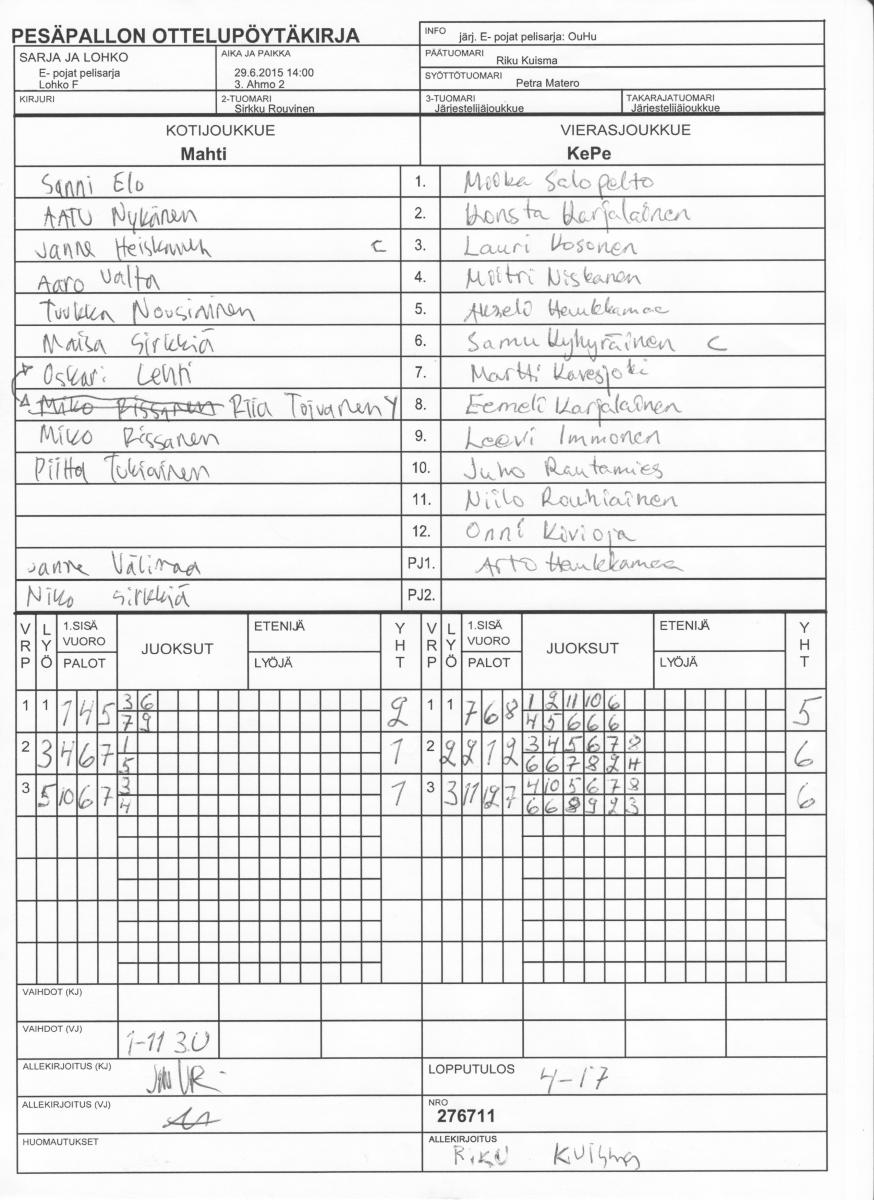 PESÄPALLON OTTELUPÖYTÄKIRJA
INFO järj. E- pojat pelisarja: OuHu
SARJA JA LOHKO
E- pojat pelisarja
Lohko F
AIKA JA PAIKKA
29.6.2015 14:00
3. Ahmo 2
PÄÄTUOMARI
Riku Kuisma
SYÖTTÖTUOMARI
Petra Matero
KIRJURI
2-TUOMARI
Sirkku Rouvinen
3-TUOMARI
Järjestelijäjoukkue
TAKARAJATUOMARI
Järjestelijäjoukkue
KOTIJOUKKUE
Mahti
VIERASJOUKKUE
KePe
Sanni Elo 1. Miika Salopelto
AATU Nykänen 2. Konsta Karjalainen
Janne Heiskanen C 3. Lauri Kosonen
Aaro Valta 4. Miitri Niskanen
Tuukka Nousiainen 5. Akseli Haukkamaa
Maisa Sirkkiä 6. Samu Kyhyräinen C
Oskari Lehti 7. Martti Kavesjoki
Miko Rissanen Riia Toivanen 8. Eemeli Karjalainen
Miko Rissanen 9. Leevi Immonen
Piitta Tukiainen 10. Juho Rautamies
11. Niilo Rouhiainen
12. Onni Kivioja
Janne Välimaa PJ1. Arto Haukkamaa
Niko Sirkkiä PJ2.
VRP LYÖ 1.SISÄ VUORO PALOT JUOKSUT ETENIJÄ LYÖJÄ YHT VRP LYÖ 1.SISÄ VUORO PALOT JUOKSUT ETENIJÄ LYÖJÄ YHT
3 6 1 2 11 10 6
1 1 1 4 5 2 1 1 7 6 8 5
7 9 4 5 6 6 6
1 3 4 5 6 7 8
2 3 4 6 7 1 2 2 2 1 2 6
5 6 6 7 8 2 4
3 4 10 5 6 7 8
3 5 10 6 7 1 3 3 11 12 7 6
4 6 6 8 9 2 3
VAIHDOT (KJ)
VAIHDOT (VJ) 1-11 3.U
ALLEKIRJOITUS (KJ)
LOPPUTULOS 4-17
ALLEKIRJOITUS (VJ)
NRO
276711
HUOMAUTUKSET
ALLEKIRJOITUS
Riku Kuisma